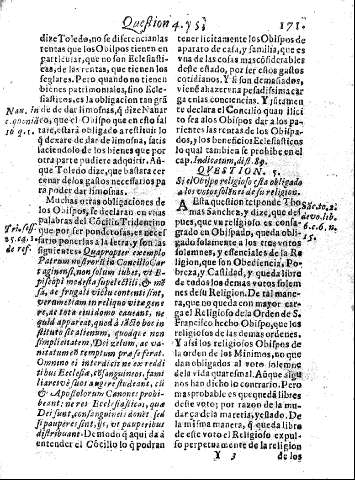 Question 4. y 5.
171.
dize Toledo, no se diferencian las
rentas que los Obispos tienen en
particular, que no son Eclesiasti-
cas, de las rentas, que tienen los
seglares. Pero quando no tienen
bienes patrimoniales, sino Ecle-
siasticos, es la obligacion tan grã
de de dar limosnas, q̃ dize Nauar
ro, que el Obispo que en esto fal
tare, estará obligado a restituir lo
q̃ dexare de dar de limosna, satis
faciendo de los bienes que por
otra parte pudiere adquirir. Aũ-
que Toledo dize, que bastara cer
cenar de los gastos necessarios pa
ra poder dar limosnas.
Muchas otras obligaciones de
los Obispos, se declaran en viuas
palabras del Cõcilio Tridentino
que por ser põderosas, es neces-
sario ponerlas a la letra, y son las
siguientes. Quapropter exemplo
Patrum nostrorũ in Cõcilio Car
taginensi, non solum iubet, vt E-
piscopi modesta supellectili, & mẽ
sa, ac frugali victu contenti sint,
verum etiam in reliquo vitæ gene
re, ac tota eius domo caueant, ne
quid appareat, quod à sãcto hoc in
stituto sit alienum, quodque non
simplicitatem, Dei zelum, ac va-
nitatum cõtemptum præ se ferat.
Omnino ei interdicit ne ex reddi
tibus Ecclesiæ, cõsanguineos, fami
liaresvè suos augere studeant, cũ
& Apostolorum Canones prohi-
beant; ne res Ecclesiasticas, quæ
Dei sunt, consanguineis donẽt sed
si pauperes sint, ijs, vt pauperibus
distribuant. De modo q̃ aqui dà à
entender el Cõcilio lo q̃ podran
Nau. in
c.
16 q. 1.
Tri. sess.
25. ca. 1.
de ref.
tener licitamente los Obispos de
aparato de casa, y familia, que es
vna de las cosas mas cõsiderables
deste estado, por ser estos gastos
cotidianos. Y si son demasiados,
vienẽ a hazer vna pesadissima car
ga en las conciencias. Y justamen
te declara el Concilio quan ilici
to sea a los Obispos dar a los pa-
rientes las rentas de los Obispa-
dos, y los beneficios Eclesiasticos
lo qual tambien se prohibe en el
cap. Indicatum, dist. 89.
QVESTION. 5.
Si el Obispo religioso està obligado
a los votos essenciales de su religion.
A Esta question responde Tho
mas Sanchez, y dize, que des
pues, que vn religioso es consa-
grado en Obispado, queda obli-
gado solamente a los tres votos
solemnes, y essenciales de la Re-
ligion, que son Obediencia, Po-
breza, y Castidad, y queda libre
de todos los demas votos solem-
nes de su Religion. De tal mane-
ra, que no queda con mayor car-
ga el Religioso de la Orden de S.
Francisco hecho Obispo, que los
religiosos de las demas ordenes.
Y assi los religiosos Obispos de
la orden de los Minimos, no que
dan obligados al voto solemne
de la vida quaresmal. Aũque algu
nos han dicho lo contrario. Pero
mas probable es que quedã libres
deste voto; por razon de la mu-
dança de la materia, y estado. De
la misma manera, q̃ queda libre
de este voto el Religioso expul-
so perpetuamente de la religion
Sãc. to. 2.
6. c. 6. n.
15.
Y 3
de los